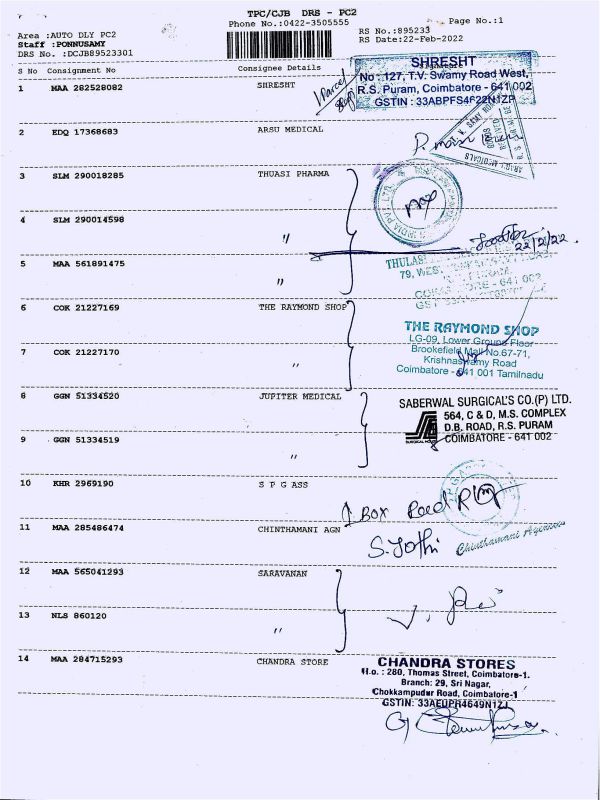 TPC/CJB DRS - PC2
Phone No.:0422-3505555
Page No.:1
Area :AUTO DLY PC2
RS No.:895233
Staff :PONNUSAMY
RS Date:22-Feb-2022
DRS No. :DCJB89523301
S No Consignment No Consignee Details
1 MAA 282528082 SHRESHT
SHRESHT
No : 127, T.V. Swamy Road West,
R.S. Puram, Coimbatore - 641 002
GSTIN : 33ABPFS4622N1ZP
2 EDQ 17368683 ARSU MEDICAL
3 SLM 290018285 THUASI PHARMA
4 SLM 290014598 "
22/2/22.
5 MAA 561891475 "
THULASI
79, WEST
COIMBATORE - 641 002
6 COK 21227169 THE RAYMOND SHOP
THE RAYMOND SHOP
LG-09, Lower Ground Floor
Brookefield Mall No.67-71,
Krishnaswamy Road
Coimbatore - 641 001 Tamilnadu
7 COK 21227170 "
8 GGN 51334520 JUPITER MEDICAL
SABERWAL SURGICAL'S CO.(P) LTD.
564, C & D, M.S. COMPLEX
D.B. ROAD, R.S. PURAM
COIMBATORE - 641 002
9 GGN 51334519 "
10 KHR 2969190 S P G ASS
1 Box
11 MAA 285486474 CHINTHAMANI AGN
S. Jothi
Chinthamani Agencies
12 MAA 565041293 SARAVANAN
13 NLS 860120 "
14 MAA 284715293 CHANDRA STORE
CHANDRA STORES
H.o. : 280, Thomas Street, Coimbatore-1.
Branch: 29, Sri Nagar,
Chokkampudur Road, Coimbatore-1
GSTIN: 33AEUPR4649N1ZJ